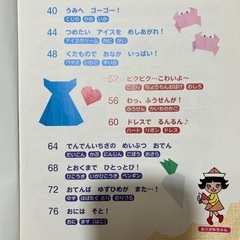 40 うみへ ゴーゴー！
くじら かめ いか
44 つめたい アイスを めしあがれ！
アイスクリーム かに かい
48 くだもので おなか いっぱい！
バナナ いちご すいか
52 ビクビク…こわいよ〜
ことり ちょうちんおばけ おしろ
56 わっ、ふうせんが！
ふうせん かいちゅうかめん
60 ドレスで るんるん♪
ハート リボン ドレス
64 でんでんいちざの めいぶつ おでん
だいこん かさ にんじん ごぼう おきゃら
68 とおくまで ひとっとび！
ひこうき いかひこうき ペンギン
72 おてんば ゆずひめが また…！
ゆず はばたくとり おりづる
76 おには そと！
おに ます（はこ）
おりがみちゃん